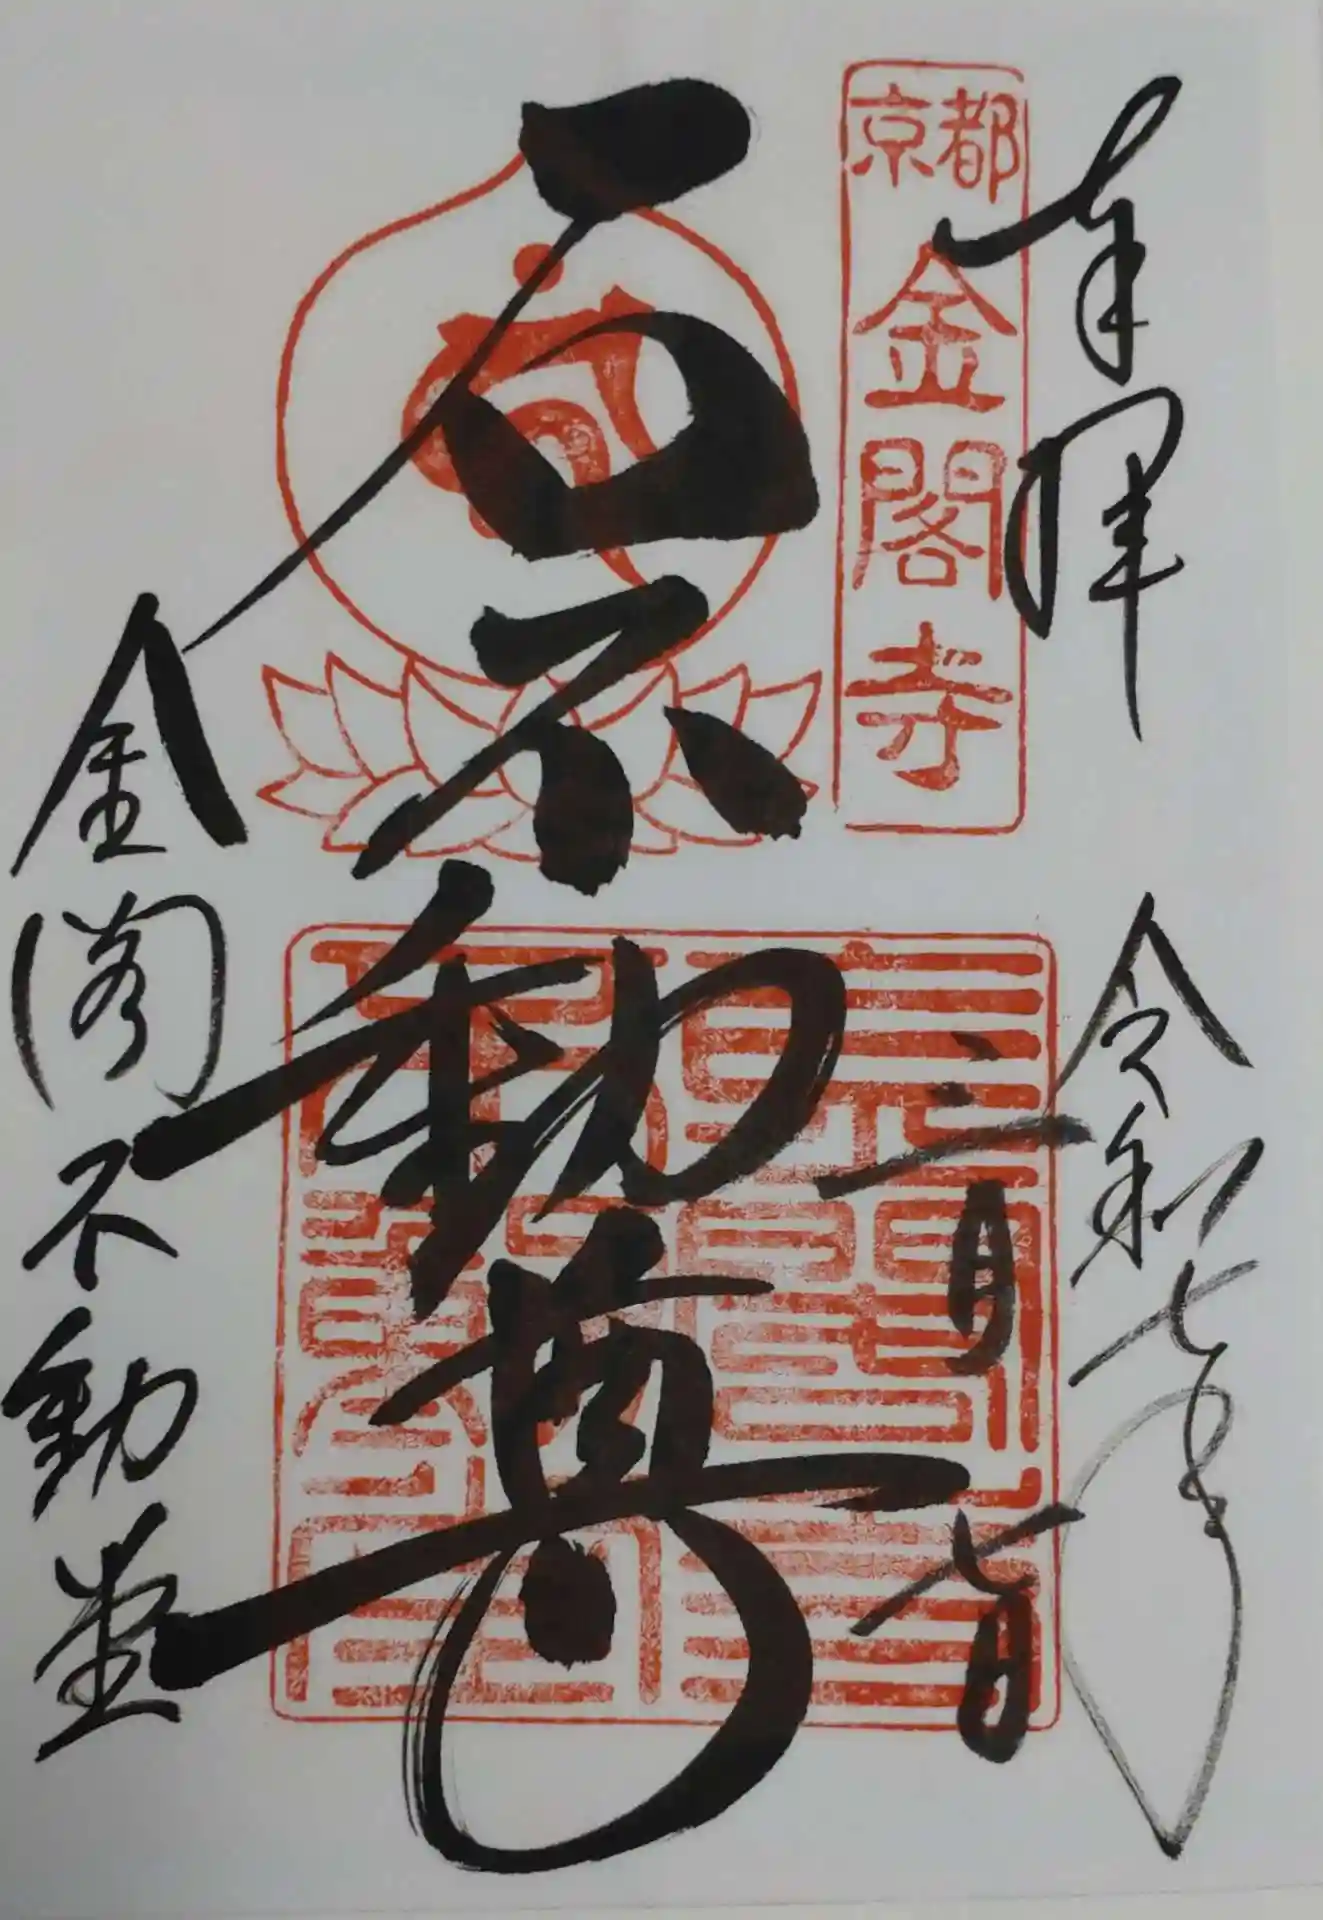 奉拝
令和七年
三月七日
京都
金閣寺
石不動尊
金閣不動堂